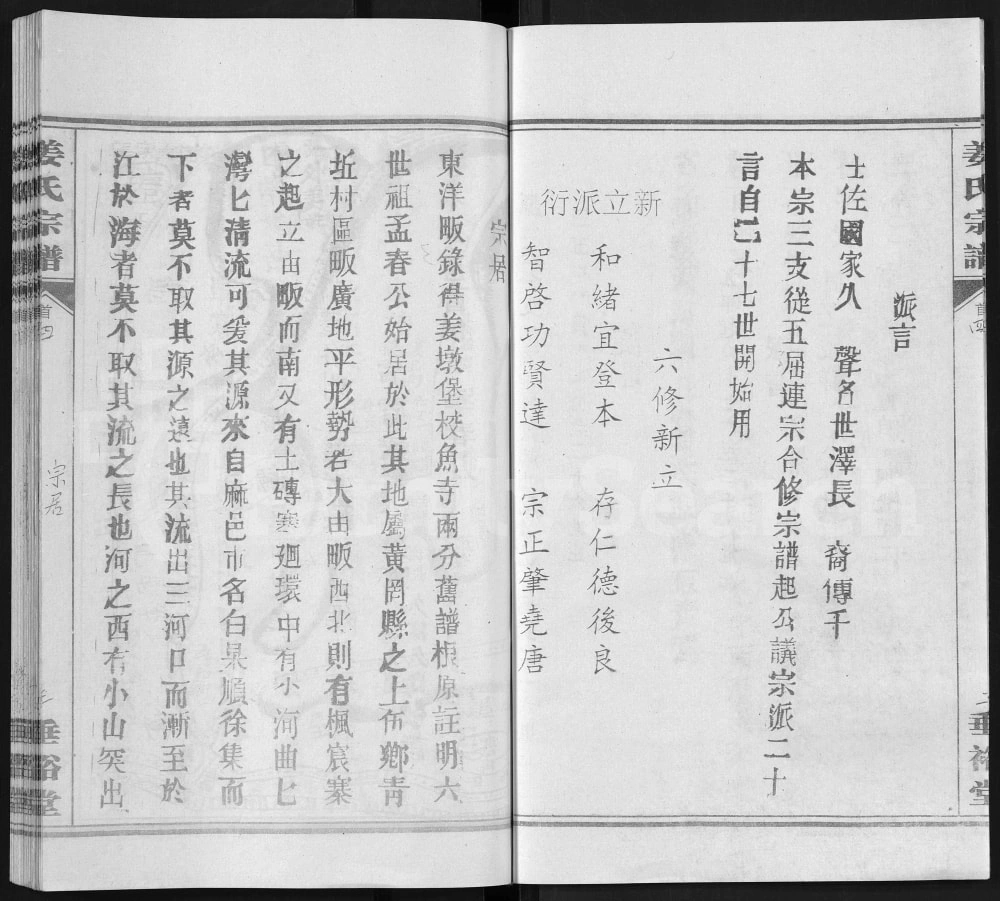 姜氏宗譜
首四
垂裕堂
派言
士佐國家久　聲名世澤長　裔傳千
本宗三支從五屆連宗合修宗譜起公議宗派二十
言自己十七世開始用
六修新立
新立派衍
和緒宜登本　存仁德後良
智啓功賢達　宗正肇堯唐
宗居
東洋畈錄得姜墩堡校魚寺兩分舊譜根原註明六
世祖孟春公始居於此其地屬黃岡縣之上伍鄉青
坵村區畈廣地平形勢若大由畈西北則有楓宸寨
之起立由畈而南又有土磚寨廻環中有小河曲匕
灣匕清流可爰其源來自麻邑市名白杲順徐集而
下者莫不取其源之遠也其流出三河口而漸至於
江於海者莫不取其流之長也河之西有小山突出
姜氏宗譜
首四
宗居
垂裕堂